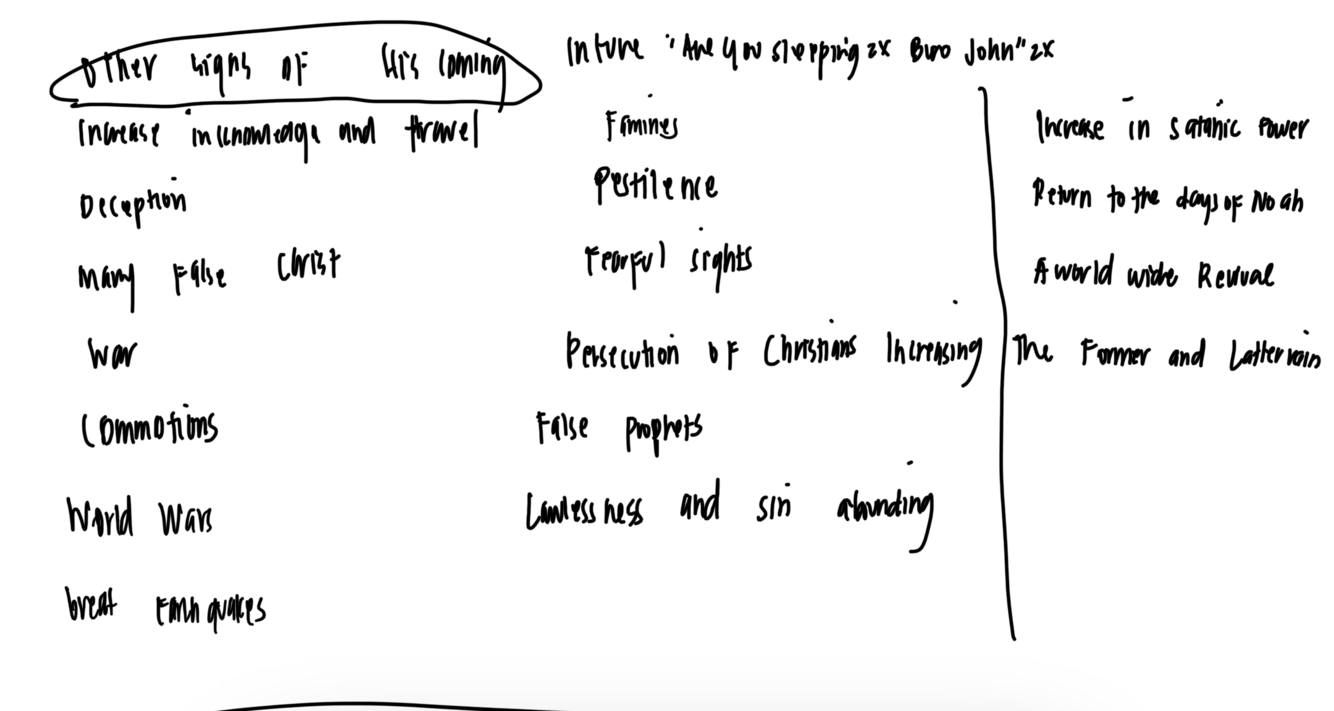 Other signs of His coming
In tune "Are you sleeping 2x Bro John" 2x
Increase in knowledge and travel
Deception
Many False Christ
War
Commotions
World Wars
Great Earthquakes
Famines
Pestilence
Fearful sights
Persecution of Christians Increasing
False prophets
Lawlessness and sin abounding
Increase in satanic power
Return to the days of Noah
A world wide Revival
The Former and Latter rain